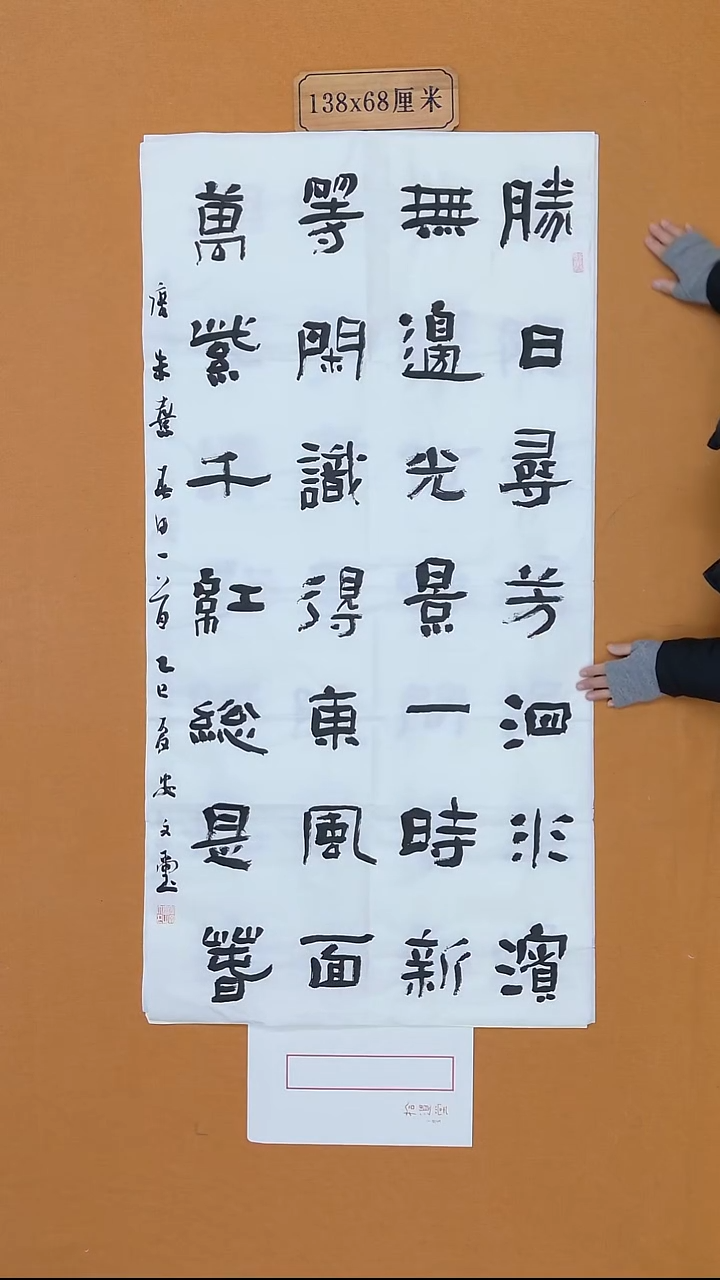 138x68厘米
勝日尋芳泗水濱
無邊光景一時新
等閑識得東風面
萬紫千紅総是春
唐朱熹春日一首乙巳夏安文